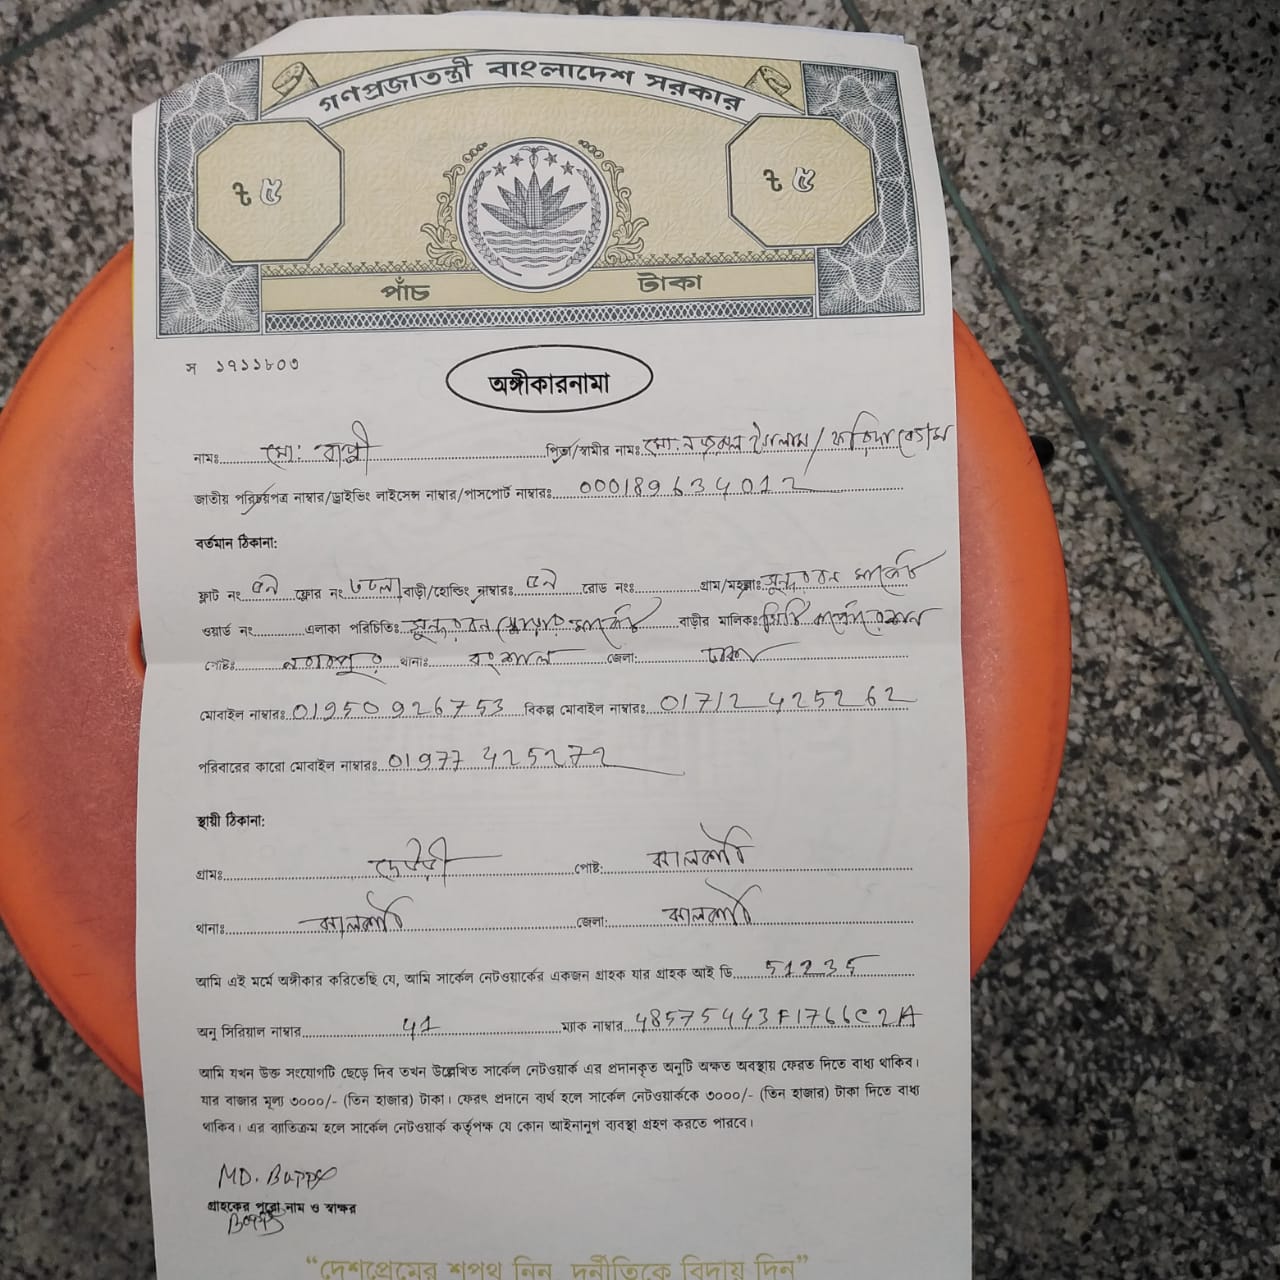 গণপ্রজাতন্ত্রী বাংলাদেশ সরকার
৳ ৫ ৳ ৫
পাঁচ টাকা
স ১৭১১৮০৩
অঙ্গীকারনামা
নামঃ মো: বাপ্পী পিতা/স্বামীর নামঃ মো: নজরুল ইসলাম / ফরিদা বেগম
জাতীয় পরিচয়পত্র নাম্বার/ড্রাইভিং লাইসেন্স নাম্বার/পাসপোর্ট নাম্বারঃ 000189634012
বর্তমান ঠিকানা:
ফ্লাট নং ফ্লোর নং ৩তলা বাড়ী/হোল্ডিং নাম্বারঃ রোড নংঃ গ্রাম/মহল্লাঃ সুন্দরবন মার্কেট
ওয়ার্ড নং এলাকা পরিচিতিঃ সুন্দরবন স্কোয়ার মার্কেট বাড়ীর মালিকঃ সিটি কর্পোরেশন
পোষ্টঃ নবাবপুর থানাঃ বংশাল জেলা: ঢাকা
মোবাইল নাম্বারঃ 01950926753 বিকল্প মোবাইল নাম্বারঃ 01712425262
পরিবারের কারো মোবাইল নাম্বারঃ 01977425272
স্থায়ী ঠিকানা:
গ্রামঃ দেউরী পোষ্ট: ঝালকাঠি
থানাঃ ঝালকাঠি জেলা: ঝালকাঠি
আমি এই মর্মে অঙ্গীকার করিতেছি যে, আমি সার্কেল নেটওয়ার্কের একজন গ্রাহক যার গ্রাহক আই ডি 51235
অনু সিরিয়াল নাম্বার 41 ম্যাক নাম্বার 48575443F1766C2A
আমি যখন উক্ত সংযোগটি ছেড়ে দিব তখন উল্লেখিত সার্কেল নেটওয়ার্ক এর প্রদানকৃত অনুটি অক্ষত অবস্থায় ফেরত দিতে বাধ্য থাকিব।
যার বাজার মূল্য ৩০০০/- (তিন হাজার) টাকা। ফেরৎ প্রদানে ব্যর্থ হলে সার্কেল নেটওয়ার্ককে ৩০০০/- (তিন হাজার) টাকা দিতে বাধ্য
থাকিব। এর ব্যতিক্রম হলে সার্কেল নেটওয়ার্ক কর্তৃপক্ষ যে কোন আইনানুগ ব্যবস্থা গ্রহণ করতে পারবে।
MD. Bappy
গ্রাহকের পুরো নাম ও স্বাক্ষর
“দেশপ্রেমের শপথ নিন, দুর্নীতিকে বিদায় দিন”